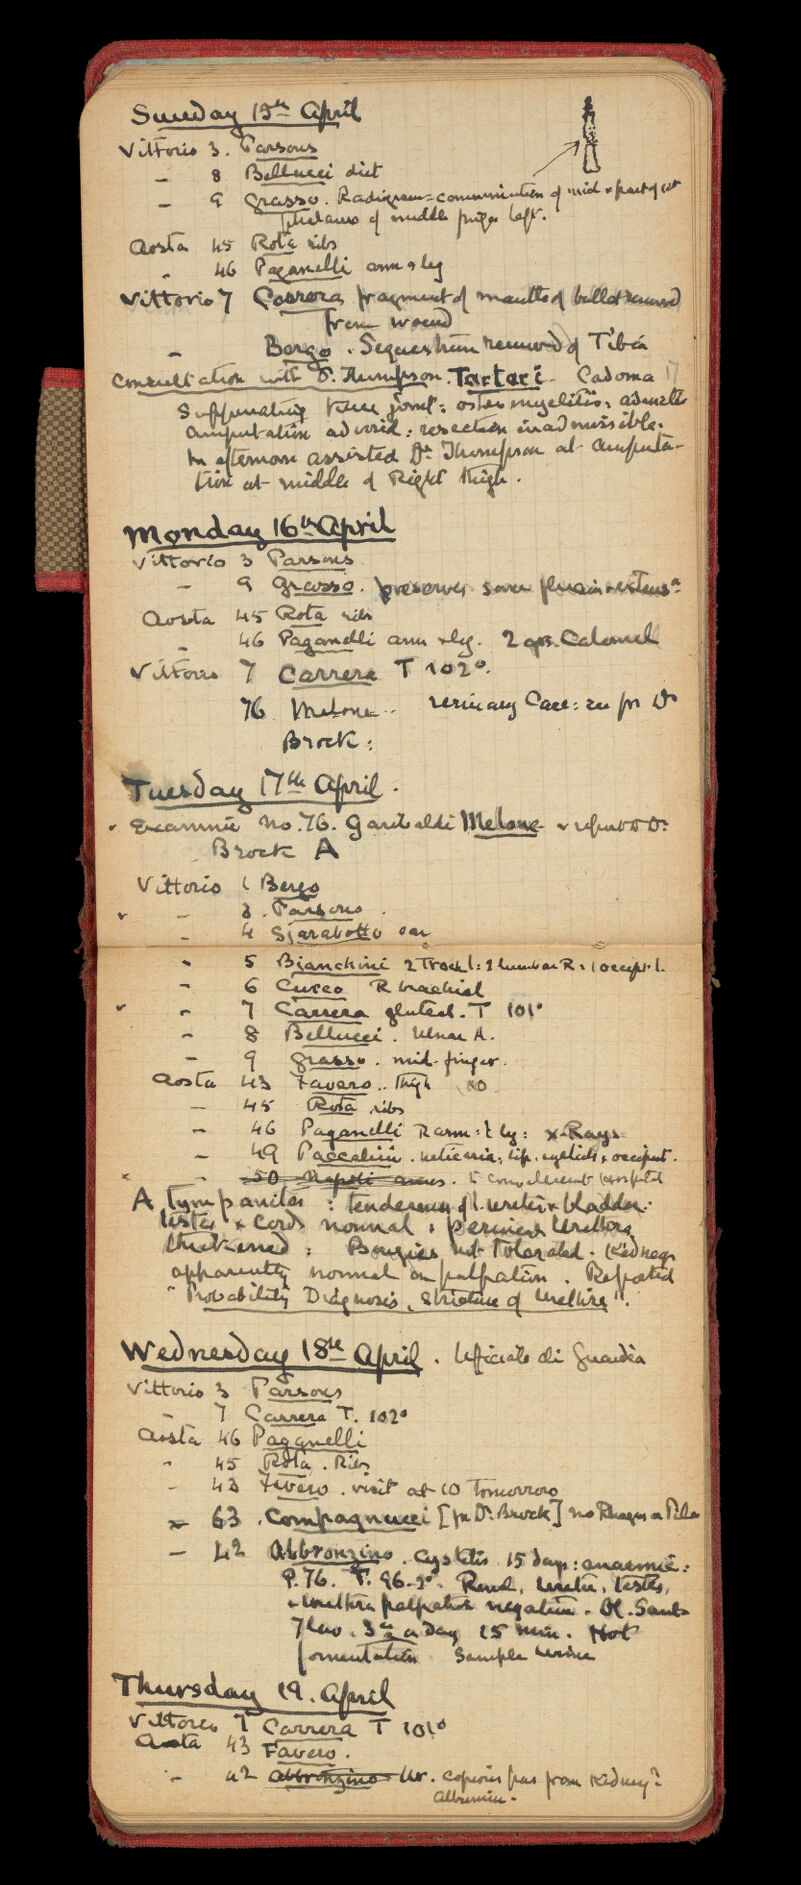 Sunday 15th April
Vittorio 3. Parsons
– 8 Bellucci diet
– 9 Grasso. Radigram = comminution of mid & part of
Phalanx of middle finger left.
Aosta 45 Rota ribs
" 46 Paganelli arm & leg
Vittorio 7 Carrera fragment of mantle of bullet removed
from wound
– Bergo. Sequestrum removed of Tibia
Consultation with Dr. Thompson. Tartari Cadorna 17
Suppurating knee joint: osteomyelitis:
amputation advised: resection inadmissible.
In afternoon assisted Dr. Thompson at amputa-
tion at middle of Right thigh.
Monday 16th April
Vittorio 3 Parsons
– 9 Grasso. preserves some flexion & extensn
Aosta 45 Rota ribs
– 46 Paganelli arm & leg. 2 grs. Calomel
Vittorio 7 Carrera T 102°.
76 Melone. Urinary Case: see for Dr
Brock:
Tuesday 17th April.
Examine No. 76. Garibaldi Melone & report to Dr
Brock A
Vittorio 1 Bergo
– 3. Parsons.
– 4 Sjarabotto ear
– 5 Bianchini 2 Troch l: 2 lumbar R: 1 occipt l.
– 6 Cucco R brachial
– 7 Carrera gluteal. T 101°
– 8 Bellucci. Ulnar A.
– 9 Grasso. mid-finger.
Aosta 43 Favero.. thigh
– 45 Rota ribs
– 46 Paganelli R arm: l leg: X-Rays
– 49 Paccalini. urticaria: lip. eyelids & occiput.
" 50 Napoli anus. to Convalescent Hospital
A Tympanites: tenderness of l. ureter & bladder:
testes & cords normal: perineal urethra
thickened: Bougies not tolerated. Kidneys
apparently normal on palpation. Reported
"Probability Diagnosis, Stricture of Urethra".
Wednesday 18th April. Ufficiale di Guardia
Vittorio 3 Parsons
– 7 Carrera T. 102°
Aosta 46 Paganelli
– 45 Rota. Ribs
– 43 Favero. visit at 10 Tomorrow
– 63. Compagnucci [for Dr. Brock] no Rhages or Piles
– 42 Abbronzino. Cystitis 15 days: anaemic:
P. 76. T. 96.2°. Renal, ureter, testes,
& urethra palpation negative. Ol. Sant.
Flav. 3 a day 15 min. Hot
fomentation. Sample urine
Thursday 19. April
Vittorio 7 Carrera T 101°
Aosta 43 Favero.
" 42 Abbronzino Ur. copious pus from Kidney?
Albumin.